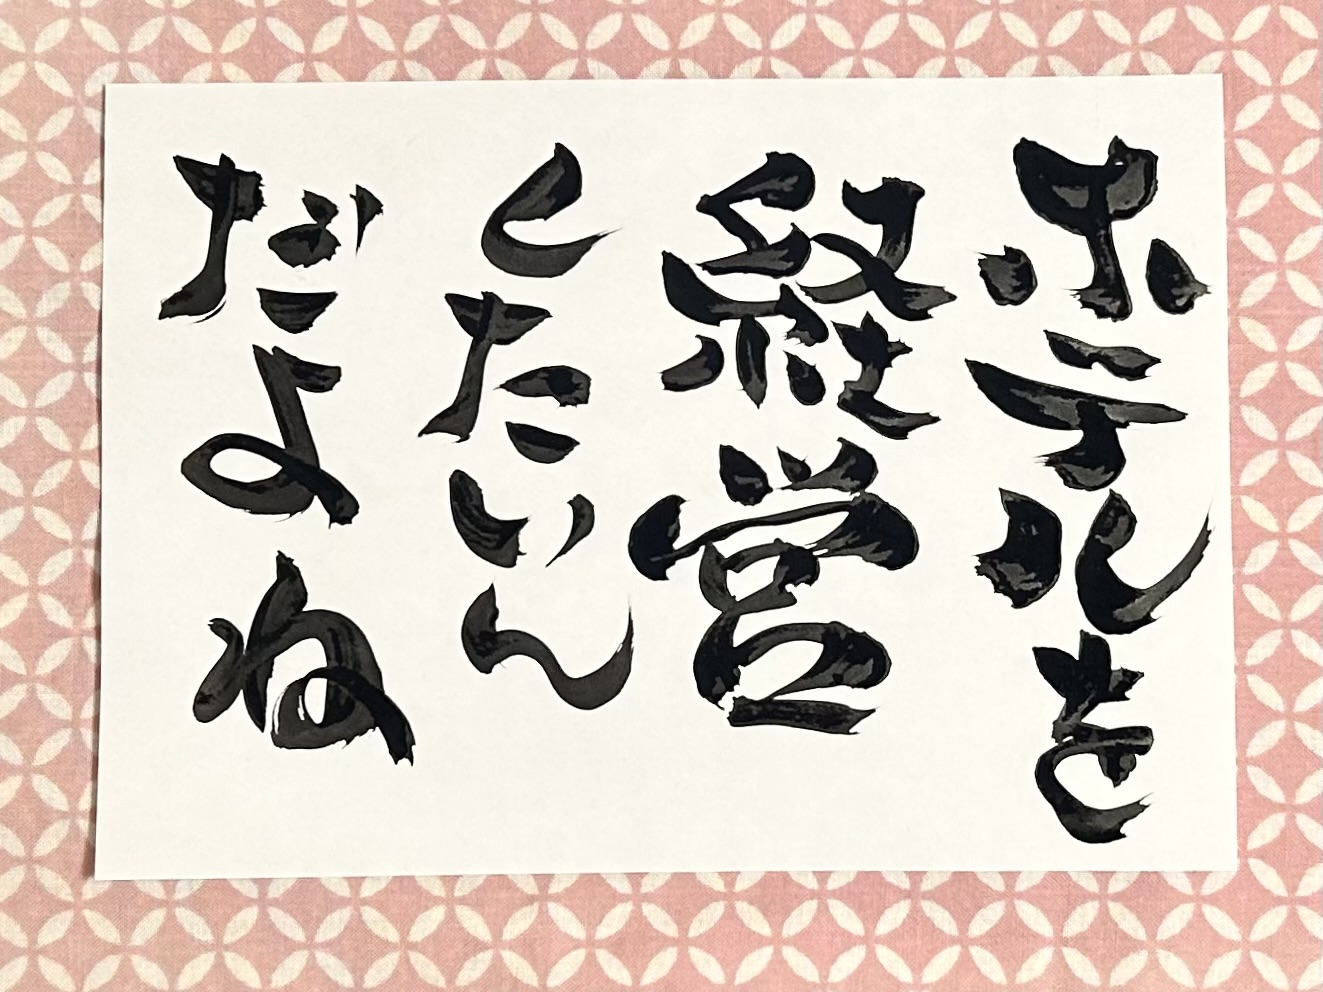 ホテルを
経営
したいん
だよね